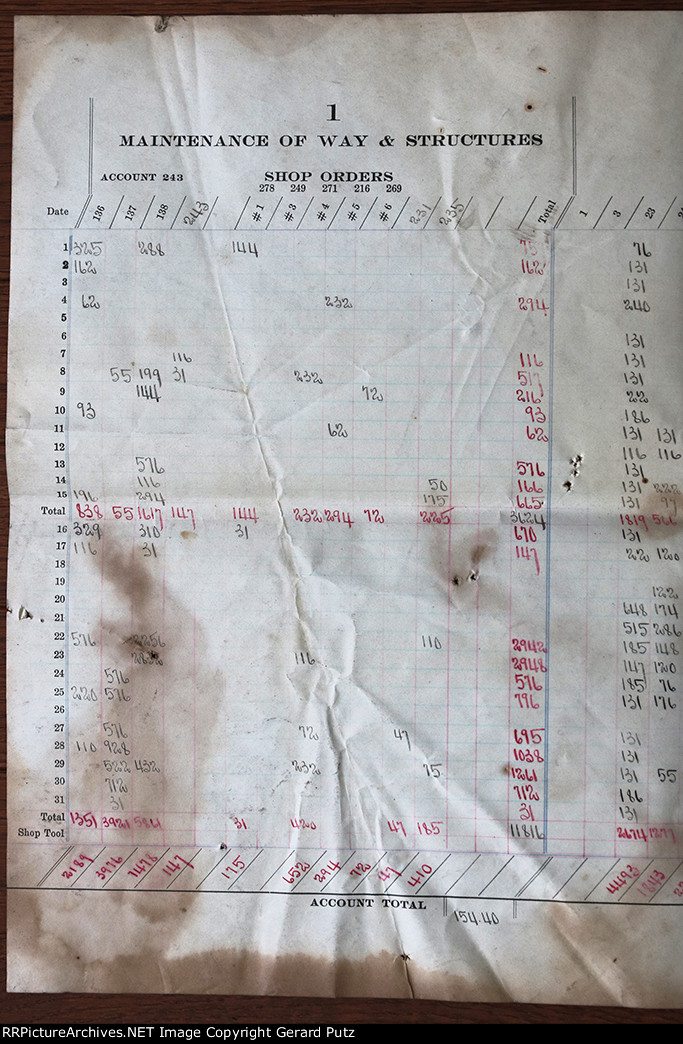 1
MAINTENANCE OF WAY & STRUCTURES
ACCOUNT 243 SHOP ORDERS
278 249 271 216 269
Date 136 137 138 243 #1 #3 #4 #5 #6 231 235 Total 1 3 23
1 325 288 144 75 76
2 162 162 131
3 131
4 62 232 294 240
5
6 131
7 116 116 131
8 55 199 31 232 517 131
9 144 72 216 22
10 93 93 186
11 62 62 131 131
12 116 116
13 576 576 131
14 116 50 166 131
15 196 294 175 665 131
Total 838 55 1617 147 144 232 294 72 225 3624 1819
16 329 310 31 670 131
17 116 31 147 22 120
18
19 122
20 648 174
21 515 286
22 576 2256 110 2942 185 148
23 2832 116 2948 147 120
24 576 576 185 76
25 220 576 796 131 176
26
27 576 72 47 695 131
28 110 928 1038 131
29 522 432 232 75 1261 131 55
30 712 712 186
31 31 31 131
Total 1351 3921 31 420 47 185 11816 2674 1277
Shop Tool
2189 3976 7478 147 175 652 294 72 47 410 4493 1843
ACCOUNT TOTAL 154.40
RRPictureArchives.NET Image Copyright Gerard Putz